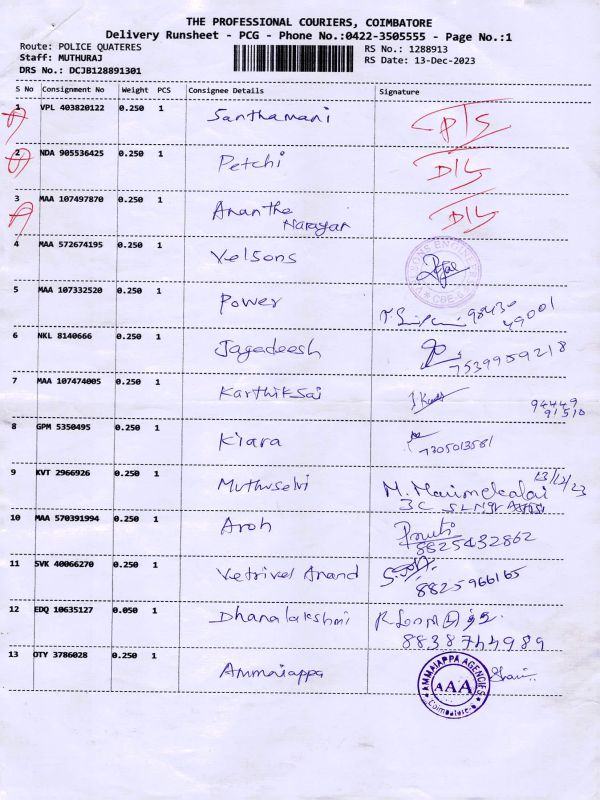 THE PROFESSIONAL COURIERS, COIMBATORE
Delivery Runsheet - PCG - Phone No.:0422-3505555 - Page No.:1
Route: POLICE QUATERES RS No.: 1288913
Staff: MUTHURAJ RS Date: 13-Dec-2023
DRS No.: DCJB128891301
S No Consignment No Weight PCS Consignee Details Signature
1 VPL 403820122 0.250 1 Santhamani
2 NDA 905536425 0.250 1 Petchi D/L
3 MAA 107497870 0.250 1 Anantha D/L
Narayan
4 MAA 572674195 0.250 1 Velsons
5 MAA 107332520 0.250 1 Power 98430
49001
6 NKL 8140666 0.250 1 Jagadeesh 7539959218
7 MAA 107474005 0.250 1 Karthiksai 94449
91510
8 GPM 5350495 0.250 1 Kiara 7305013581
9 KVT 2966926 0.250 1 Muthuselvi M. Manimekalai 13/12/23
3C
10 MAA 570391994 0.250 1 Aroh
8825432862
11 SVK 40066270 0.250 1 Vetrivel Anand 8825966165
12 EDQ 10635127 0.050 1 Dhanalakshmi
8838744989
13 OTY 3786028 0.250 1 Ammaiappa AMMAIAPPA AGENCIES
AAA
Coimbatore